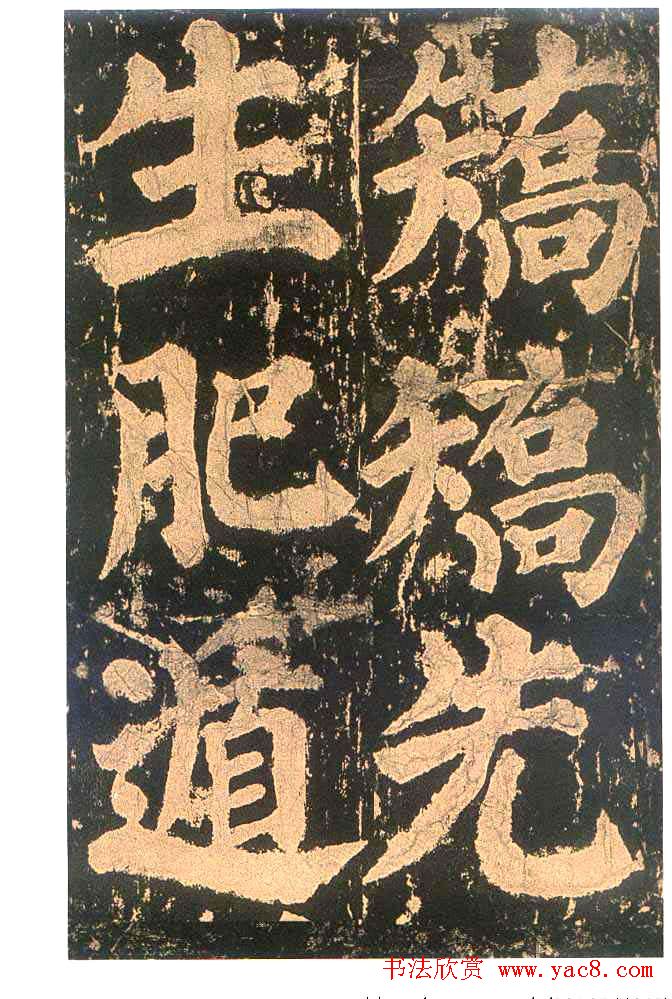 矯矯先
生肥遁
书法欣赏 www.yac8.com